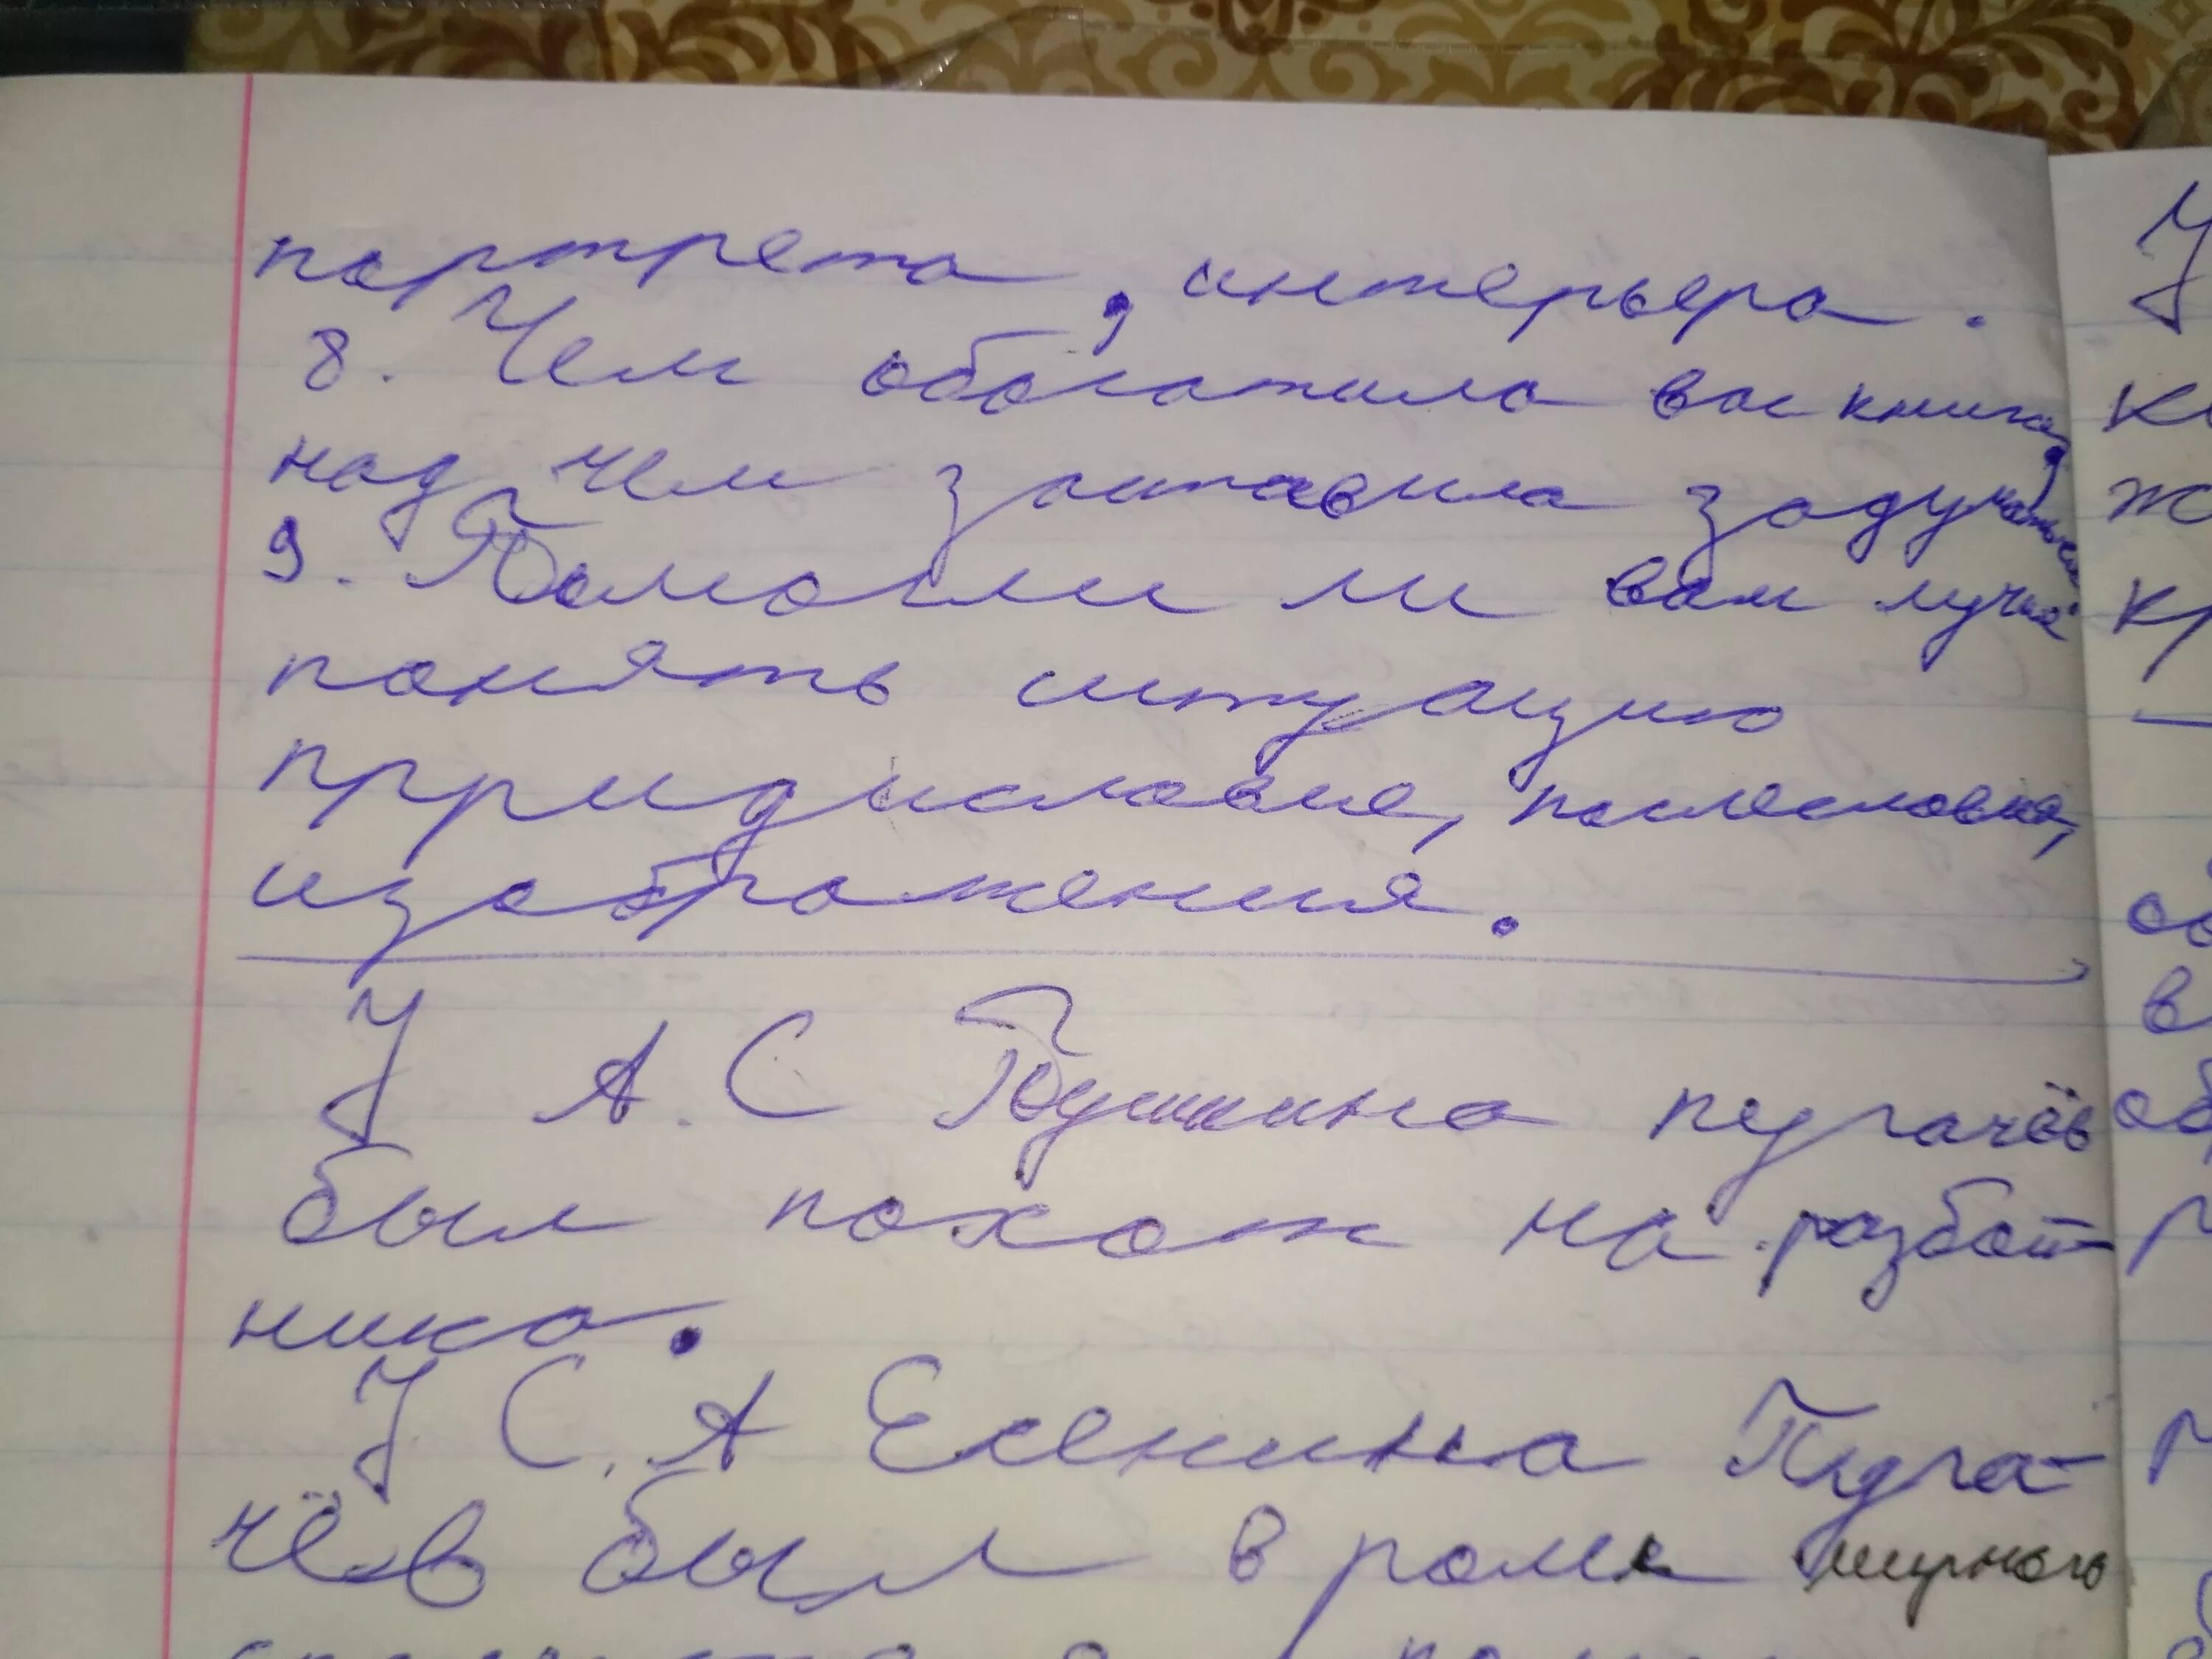 портрета, интерьера.
8. Чем обогатила вас книга,
над чем заставила задуматься
9. Помогли ли вам лучше
понять ситуацию
прридисловие, послесловие,
изображения.
У А. С Пушкина пугачёв
был похож на разбой-
ника.
У С. А Есенина Пуга-
чёв был в роли мирного